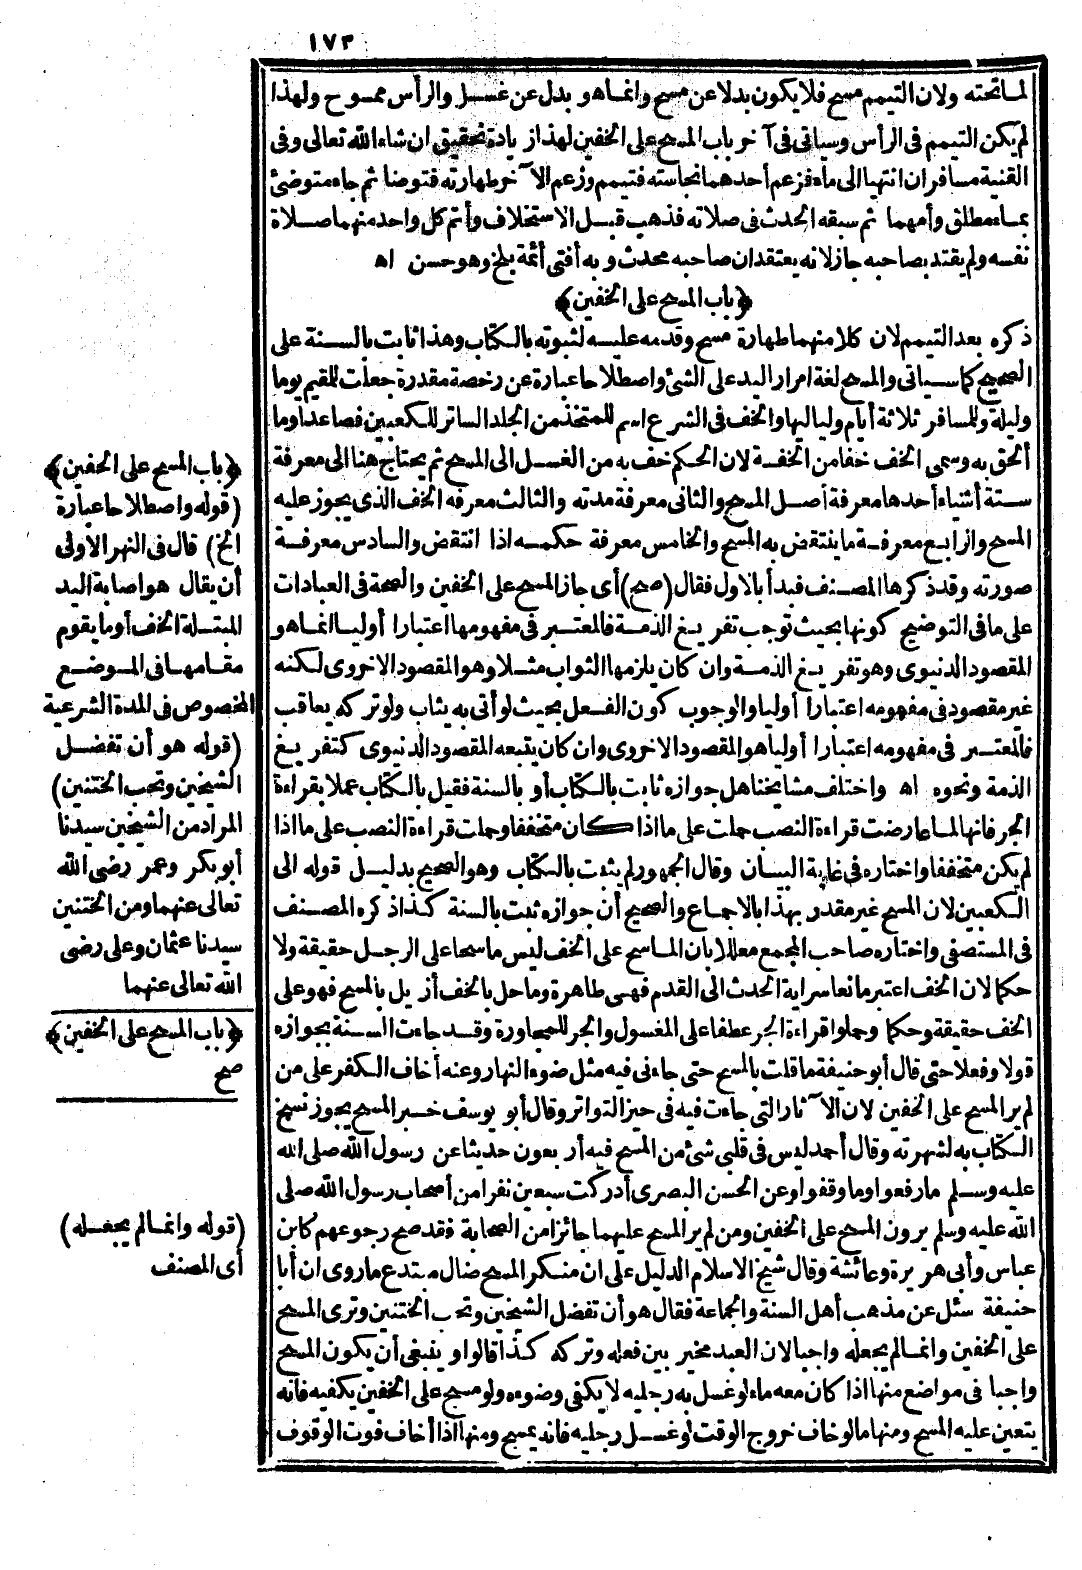 ١٧٣
لما تحته ولان التيمم مسح فلا يكون بدلا عن مسح وانما هو بدل عن غسل والرأس ممسوح ولهذا
لم يكن التيمم فى الرأس وسيأتى فى آخر باب المسح على الخفين لهذا زيادة تحقيق ان شاء الله تعالى وفى
القنية مسافران انتهيا الى ماء فزعم أحدهما نجاسته فتيمم وزعم الآخر طهارته فتوضأ ثم جاء متوضئ
بماء مطلق وأمهما ثم سبقه الحدث فى صلاته فذهب قبل الاستخلاف وأتم كل واحد منهما صلاة
نفسه ولم يقتد بصاحبه جاز لانه يعتقد ان صاحبه محدث وبه أفتى أئمة بلخ وهو حسن اه
﴿باب المسح على الخفين﴾
ذكره بعد التيمم لان كلا منهما طهارة مسح وقدمه عليه لثبوته بالكتاب وهذا ثابت بالسنة على
الصحيح كما سيأتى والمسح لغة امرار اليد على الشئ واصطلاحا عبارة عن رخصة مقدرة جعلت للمقيم يوما
وليلة وللمسافر ثلاثة أيام ولياليها والخف فى الشرع اسم للمتخذ من الجلد الساتر للكعبين فصاعدا وما
ألحق به وسمى الخف خفا من الخفة لان الحكم خف به من الغسل الى المسح ثم يحتاج هنا الى معرفة
ستة أشياء أحدها معرفة أصل المسح والثانى معرفة مدته والثالث معرفه الخف الذى يجوز عليه
المسح والرابع معرفة ما ينتقض به المسح والخامس معرفة حكمه اذا انتقض والسادس معرفة
صورته وقد ذكرها المصنف فبدأ بالاول فقال (صح) أى جاز المسح على الخفين والصحة فى العبادات
على ما فى التوضيح كونها بحيث توجب تفريغ الذمة فالمعتبر فى مفهومها اعتبارا أوليا انما هو
المقصود الدنيوى وهو تفريغ الذمة وان كان يلزمها الثواب مثلا وهو المقصود الاخروى لكنه
غير مقصود فى مفهومه اعتبارا أوليا والوجوب كون الفعل بحيث لو أتى به يثاب ولو تركه يعاقب
فالمعتبر فى مفهومه اعتبارا أوليا هو المقصود الاخروى وان كان يتبعه المقصود الدنيوى كتفريغ
الذمة ونحوه اه واختلف مشايخنا هل جوازه ثابت بالكتاب أو بالسنة فقيل بالكتاب عملا بقراءة
الجر فانها لما عارضت قراءة النصب حملت على ما اذا كان متخففا وحملت قراءة النصب على ما اذا
لم يكن متخففا واختاره فى غاية البيان وقال الجمهور لم يثبت بالكتاب وهو الصحيح بدليل قوله الى
الكعبين لان المسح غير مقدر بهذا بالاجماع والصحيح أن جوازه ثبت بالسنة كذا ذكره المصنف
فى المستصفى واختاره صاحب المجمع معللا بان الماسح على الخف ليس ماسحا على الرجل حقيقة ولا
حكما لان الخف اعتبر مانعا سراية الحدث الى القدم فهى طاهرة وما حل بالخف أزيل بالمسح فهو على
الخف حقيقة وحكما وحملوا قراءة الجر عطفا على المغسول والجر للمجاورة وقد جاءت السنة بجوازه
قولا وفعلا حتى قال أبو حنيفة ما قلت بالمسح حتى جاءنى فيه مثل ضوء النهار وعنه أخاف الكفر على من
لم ير المسح على الخفين لان الآثار التى جاءت فيه فى حيز التواتر وقال أبو يوسف خبر المسح يجوز نسخ
الكتاب به لشهرته وقال أحمد ليس فى قلبى شئ من المسح فيه أربعون حديثا عن رسول الله صلى الله
عليه وسلم ما رفعوا وما وقفوا وعن الحسن البصرى أدركت سبعين نفرا من أصحاب رسول الله صلى
الله عليه وسلم يرون المسح على الخفين ومن لم ير المسح عليهما جائزا من الصحابة فقد صح رجوعهم كابن
عباس وأبى هريرة وعائشة وقال شيخ الاسلام الدليل على ان منكر المسح ضال مبتدع ما روى ان أبا
حنيفة سئل عن مذهب أهل السنة والجماعة فقال هو أن تفضل الشيخين وتحب الختنين وترى المسح
على الخفين وانما لم يجعله واجبا لان العبد مخير بين فعله وتركه كذا قالوا وينبغى أن يكون المسح
واجبا فى مواضع منها اذا كان معه ماء لو غسل به رجليه لا يكفى وضوءه ولو مسح على الخفين يكفيه فانه
يتعين عليه المسح ومنها ما لو خاف خروج الوقت لو غسل رجليه فانه يمسح ومنها اذا أخاف فوت الوقوف
﴿باب المسح على الخفين﴾
(قوله واصطلاحا عبارة
الخ) قال فى النهر الاولى
أن يقال هو اصابة اليد
المبتلة الخف أو ما يقوم
مقامها فى الموضع
المخصوص فى المدة الشرعية
(قوله هو أن تفضل
الشيخين وتحب الختنين)
المراد من الشيخين سيدنا
أبو بكر وعمر رضى الله
تعالى عنهما ومن الختنين
سيدنا عثمان وعلى رضى
الله تعالى عنهما
﴿باب المسح على الخفين﴾
صح
(قوله وانما لم يجعله)
أى المصنف